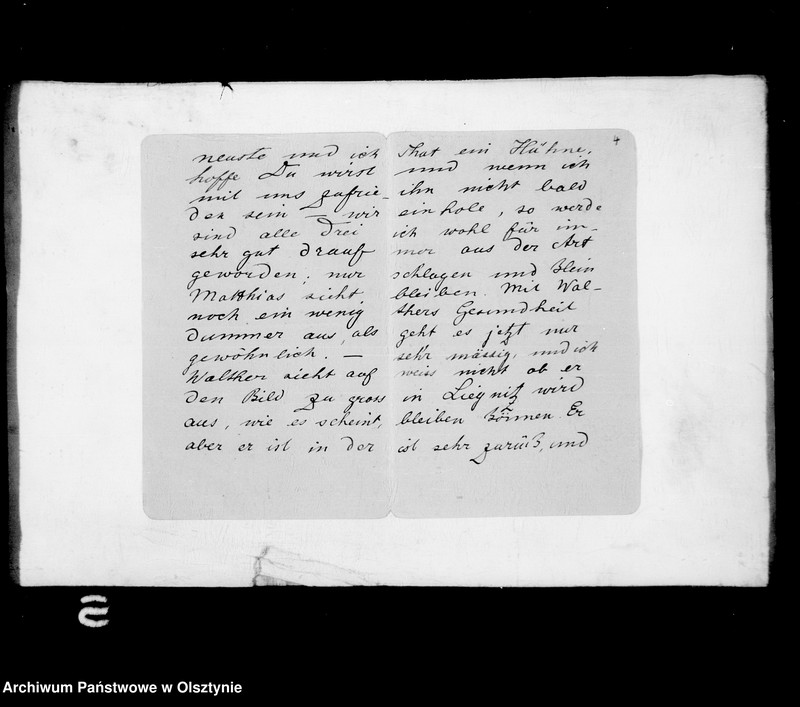 neuste und ich
hoffe Du wirst
mit uns zufrie-
den sein — wir
sind alle Drei
sehr gut drauf
geworden; nur
Matthias sieht
noch ein wenig
dummer aus, als
gewöhnlich. —
Walther sieht auf
den Bild zu gross
aus, wie es scheint,
aber er ist in der
4
That ein Hühne,
und wenn ich
ihn nicht bald
einhole, so werde
ich wohl für im-
mer aus der Art
schlagen und klein
bleiben. Mit Wal-
thers Gesundheit
geht es jetzt nur
sehr mässig, und ich
weiss nicht ob er
in Liegnitz wird
bleiben können. Er
ist sehr zurück, und
Archiwum Państwowe w Olsztynie